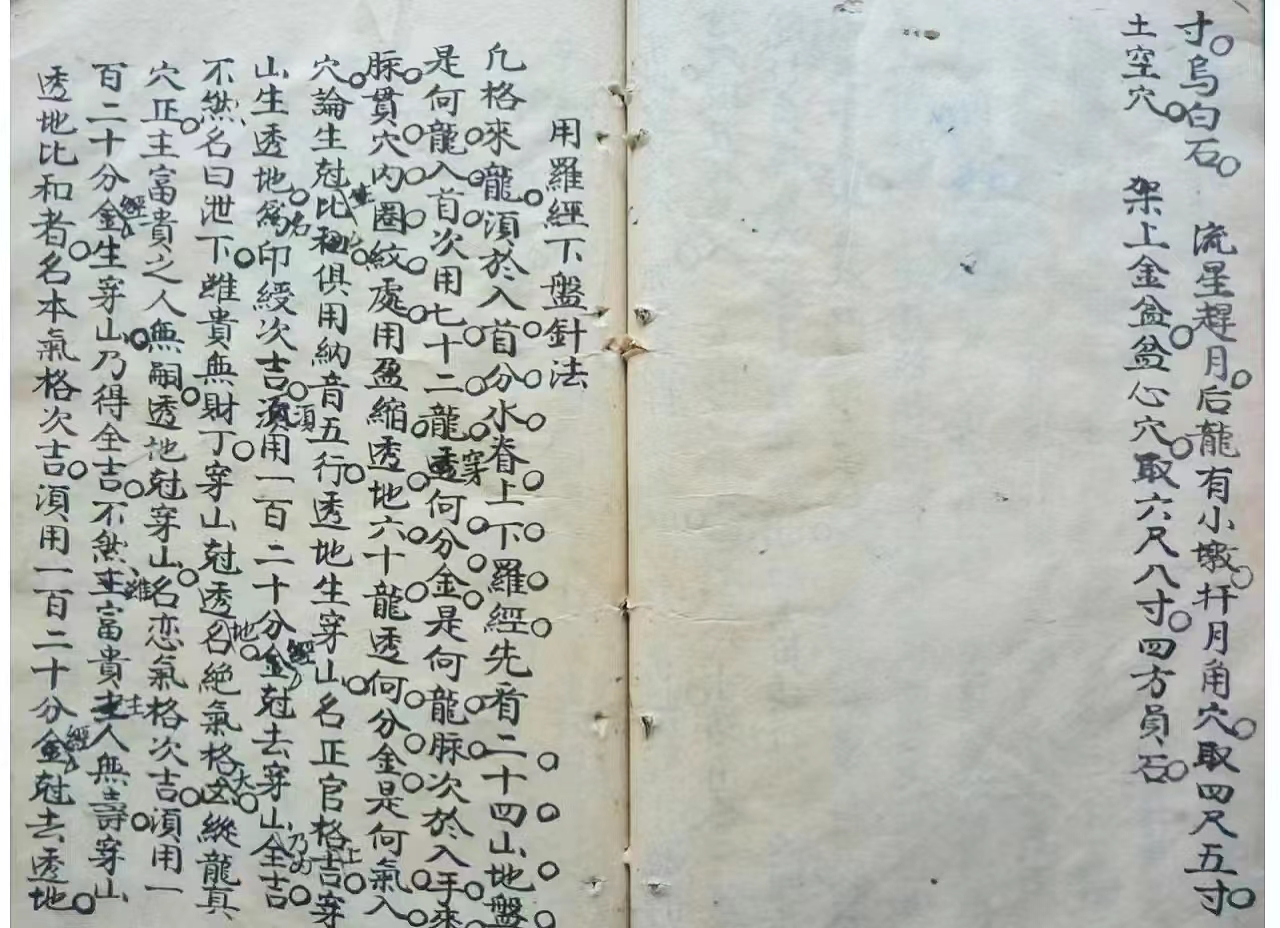 寸。烏白石。　流星趕月。后龍有小墩。扦月角穴。取四尺五寸。
土空穴。　架上金盆。盆心穴。取六尺八寸。四方員石。
用羅經下盤針法
凢格來龍。湏於入首。分。水。脊。上。下。羅。經。先看二。十。四。山。地。盤。
是何。龍。入。首。次用七。十。二。龍。穿透何。分。金。是何龍。脲。次於入手。來。
脲。貫。穴。内。圈。紋。處。用盈縮。透。地。六十。龍。透何。分。金。是何。氣。入。
穴。論生尅比和俱用納音五行。透地生穿山。名正官格上吉。穿
山生透地。名爲印綬次吉。湏須用一百二十分金經尅去穿山乃爲全吉。
不然名曰泄下。雖貴無財丁。穿山尅透地名。絕氣格大凶。縱龍真
穴正。主富貴之人無嗣。透地尅穿山。名恋氣格次吉。湏用一
百二十分金經生穿山。乃得全吉。不然雖主富貴主人無壽。穿山
透地比和者。名本氣格次吉。湏用一百二十分金經尅去透地。